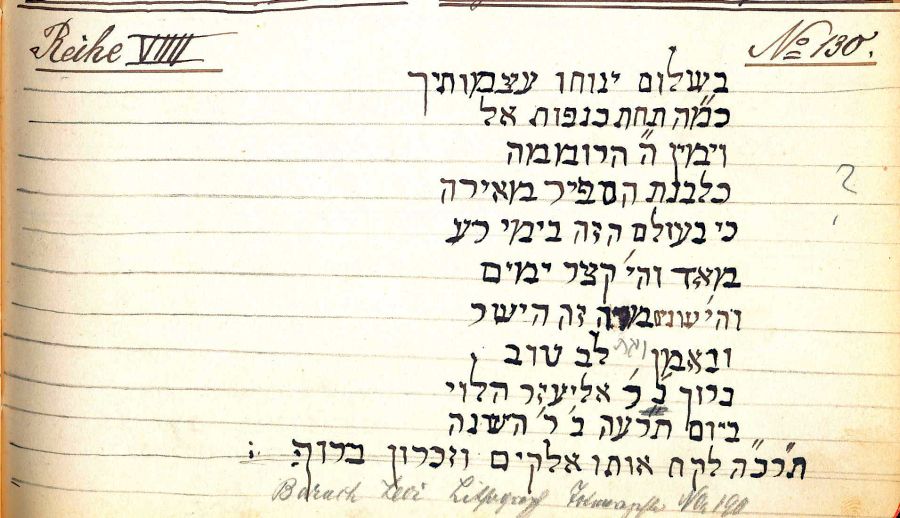 Reihe VIIII
No 130.
בשלום ינוחו עצמותיך
כמ"ה תחת כנפות אל
וימין ה' הרוממה
כלבנת הספיר מאירה
כי בעולם הזה בימי רע
מאד והי' קצר ימים
והי' זה הישר
ובאמין לב טוב
ברוך ב ר' אליעזר הלוי
ביום תרעה ב' ר' השנה
תרכ"ה לקח אותו אלקים וזכרון ברוך:
Baruch Levi Lithograph No 190